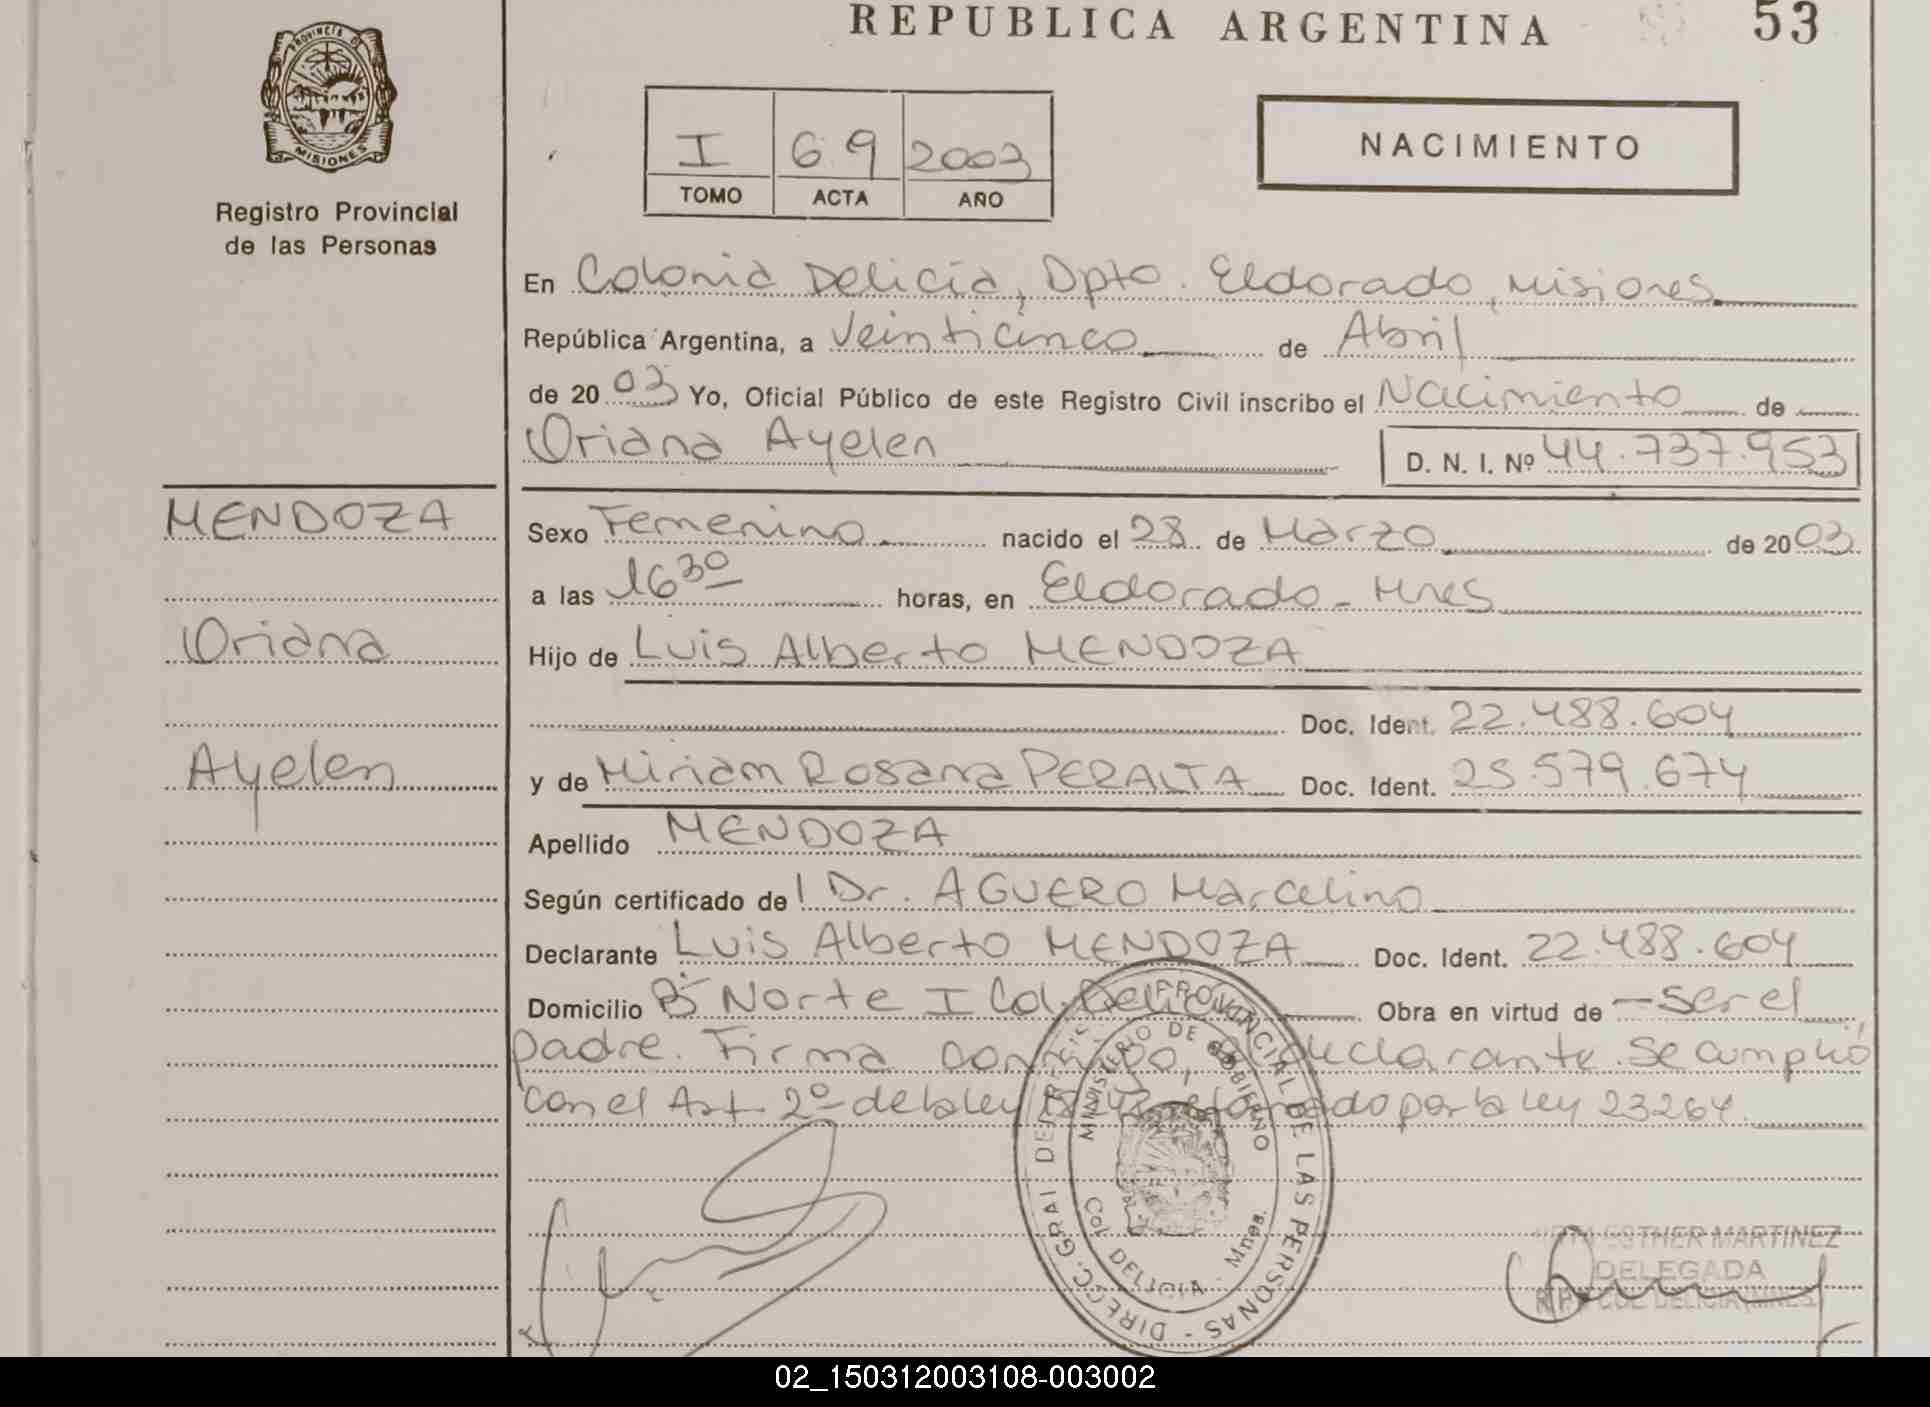 REPUBLICA ARGENTINA 53
PROVINCIA DE MISIONES
Registro Provincial
de las Personas
I 69 2003
TOMO ACTA AÑO
NACIMIENTO
En Colonia Delicia, Dpto. Eldorado, Misiones
República Argentina, a Veinticinco de Abril
de 2003 Yo, Oficial Público de este Registro Civil inscribo el Nacimiento de
Oriana Ayelen D. N. I. Nº 44.737.953
MENDOZA
Oriana
Ayelen
Sexo Femenino nacido el 28 de Marzo de 2003
a las 16 30 horas, en Eldorado - Mnes
Hijo de Luis Alberto MENDOZA
Doc. Ident. 22.488.604
y de Miriam Rosana PERALTA Doc. Ident. 25.579.674
Apellido MENDOZA
Según certificado del Dr. AGUERO Marcelino
Declarante Luis Alberto MENDOZA Doc. Ident. 22.488.604
Domicilio Bº Norte I Col. Delicia Obra en virtud de - ser el
padre. Firma conmigo, el declarante. Se cumplió
con el Art. 2º de la ley reformado por la ley 23264.
DIRECC. GRAL DE REGIS. PROVINCIAL DE LAS PERSONAS
MINISTERIO DE GOBIERNO
Col DELICIA - Mnes.
ESTHER MARTINEZ
DELEGADA
COL DELICIA MNES
02_150312003108-003002